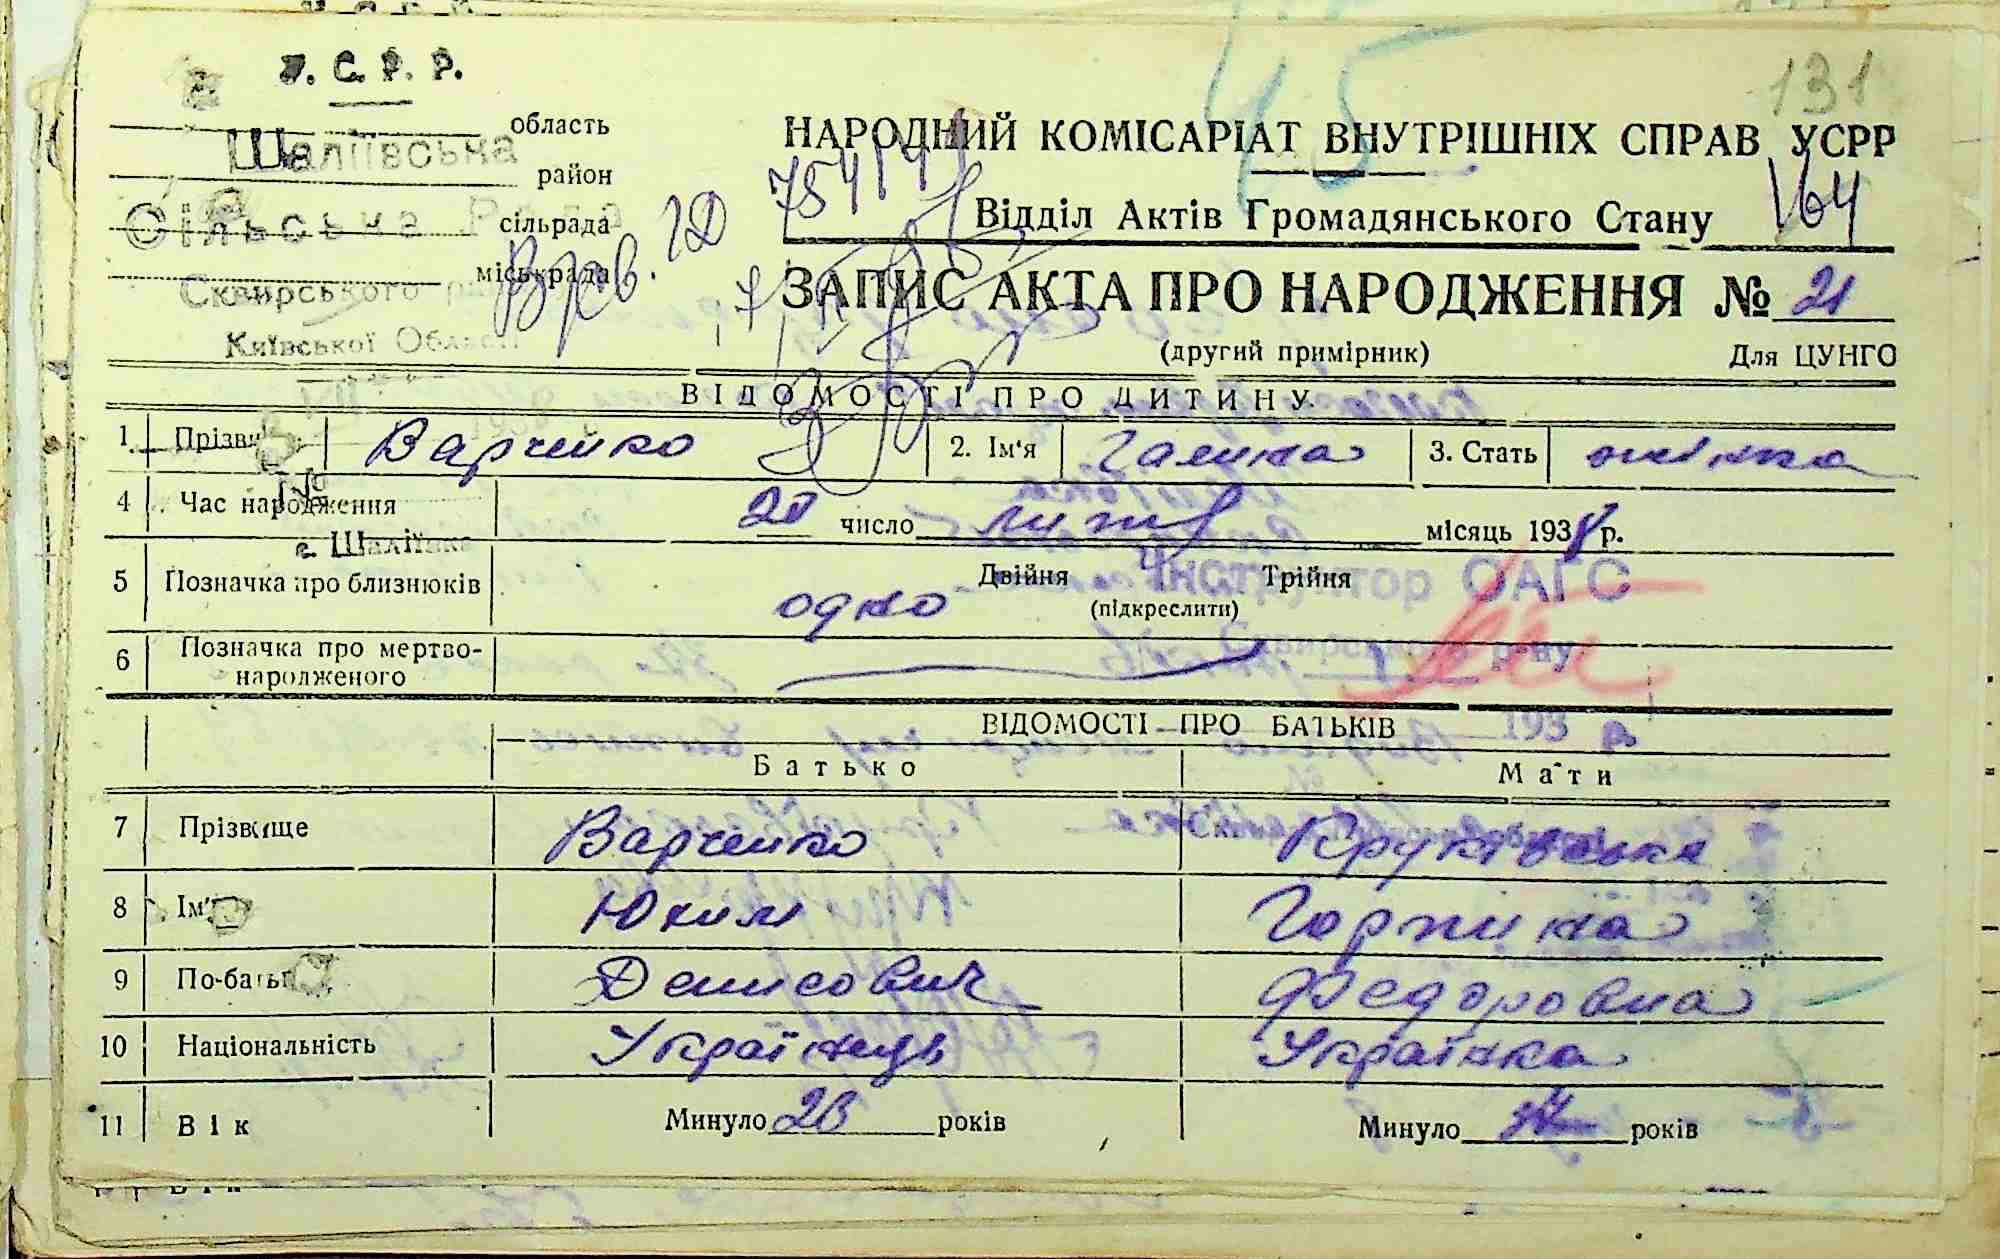 У. С. Р. Р.
131
область
Шаліївська
район
Сільська Рада
сільрада
міськрада
Сквирського
Київської Області
НАРОДНИЙ КОМІСАРІАТ ВНУТРІШНІХ СПРАВ УСРР
Відділ Актів Громадянського Стану 164
ЗАПИС АКТА ПРО НАРОДЖЕННЯ № 21
(другий примірник) Для ЦУНГО
ВІДОМОСТІ ПРО ДИТИНУ
1. Прізвище Варченко 2. Ім'я Галина 3. Стать жінка
4 Час народження 20 число місяць 1938 р.
с. Шаліївка
5 Позначка про близнюків одно Двійня Трійня
(підкреслити)
Інструктор ОАГС
Сквирського р-ну
6 Позначка про мертво-
народженого
193 р.
ВІДОМОСТІ ПРО БАТЬКІВ
Батько Мати
7 Прізвище Варченко Круківська
8 Ім'я Юхим Горпина
9 По-батькові Денисович Федоровна
10 Національність Українець Українка
11 Вік Минуло років Минуло років